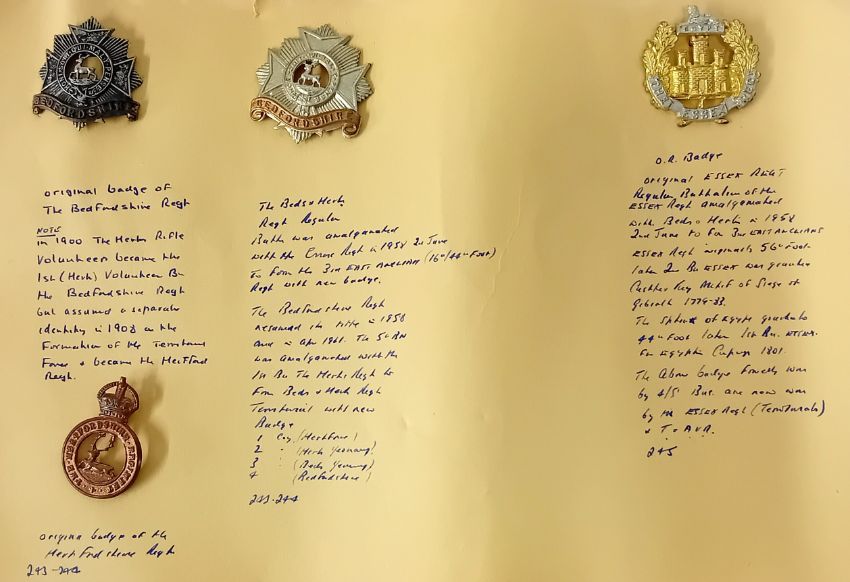 HONI SOIT QUI MAL Y PENSE
BEDFORDSHIRE
original badge of
The Bedfordshire Regt
NOTE
in 1900 The Herts Rifle
Volunteers became the
1st (Herts) Volunteer Bn
the Bedfordshire Regt
but assumed a separate
identity in 1908 on the
Formation of the Territorial
Force & became the Hertford
Regt.
HERTFORDSHIRE REGIMENT
original badge of the
Hertfordshire Regt
243-244
BEDFORDSHIRE
The Beds & Herts
Regt Regular
Battn was amalgamated
with the Essex Regt in 1958 2nd June
to form the 3rd EAST ANGLIAN (16th/44th Foot)
Regt with new badge.
The Bedfordshire Regt
resumed its title in 1958
and in Apr 1961. The 5th BN
was amalgamated with the
1st Bn The Herts Regt to
form Beds & Herts Regt
Territorial with new
Badge
1 Coy (Hertford)
2 " (Herts Yeomanry)
3 " (Beds Yeomanry)
4 (Bedfordshire)
243-244
EGYPT
THE ESSEX REGT
O.R. Badge
original ESSEX REGT
Regular Battalion of the
ESSEX Regt amalgamated
with Beds & Herts in 1958
2nd June to form 3rd EAST ANGLIANS
ESSEX Regt originally 56th Foot
later 2nd Bn ESSEX was granted
Castle & Key Motif of Siege of
Gibralt 1779-83.
The Sphinx of Egypt granted to
44th FOOT later 1st Bn. ESSEX.
For Egyptn 1801.
The above badge formerly was
by 4/5 Bn. and now worn
by the ESSEX Regt (Territorials)
& T & A.V.R.
245